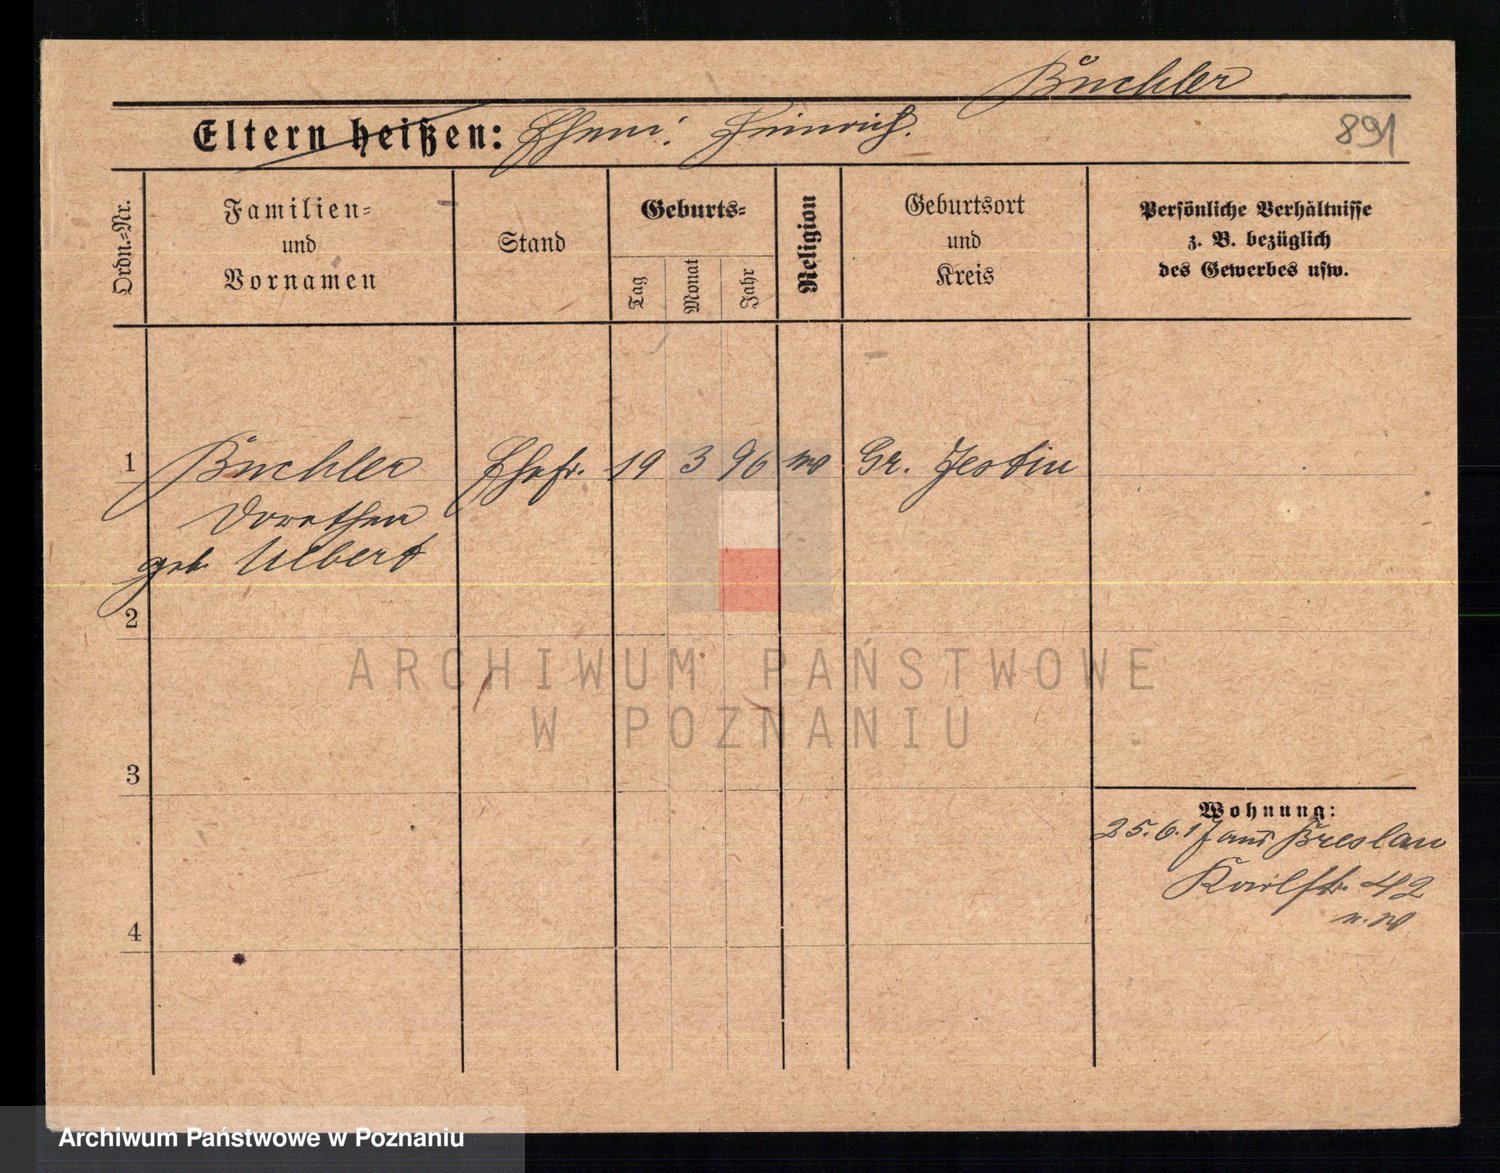 Büchler
Eltern heißen: Ehem: Heinrich.
891
Ordn.-Nr.
Familien-
und
Vornamen
Stand
Geburts-
Tag
Monat
Jahr
Religion
Geburtsort
und
Kreis
Persönliche Verhältnisse
z. B. bezüglich
des Gewerbes usw.
1 Büchler Ehefr. 19 3 96 Gr. Jestin
Dorothea
geb. Ulbert
2
ARCHIWUM PAŃSTWOWE
W POZNANIU
3
Wohnung:
25.6.17 aus Breslau
Karlstr. 42
4
Archiwum Państwowe w Poznaniu